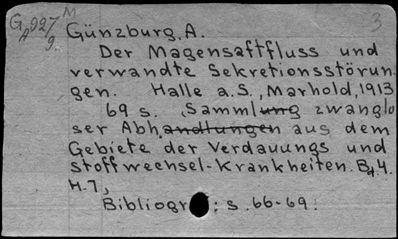 M
G927 Günzburg, A. 3
A 9.
Der Magensaftfluss und
verwandte Sekretionsstörun
gen. Halle a.S., Marhold, 1913
69 s. Sammlung zwanglo
ser Abhandlungen aus dem
Gebiete der Verdauungs und
stoffwechsel-Krankheiten. Bd. 4.
H. 7,
Bibliogr : s. 66-69.